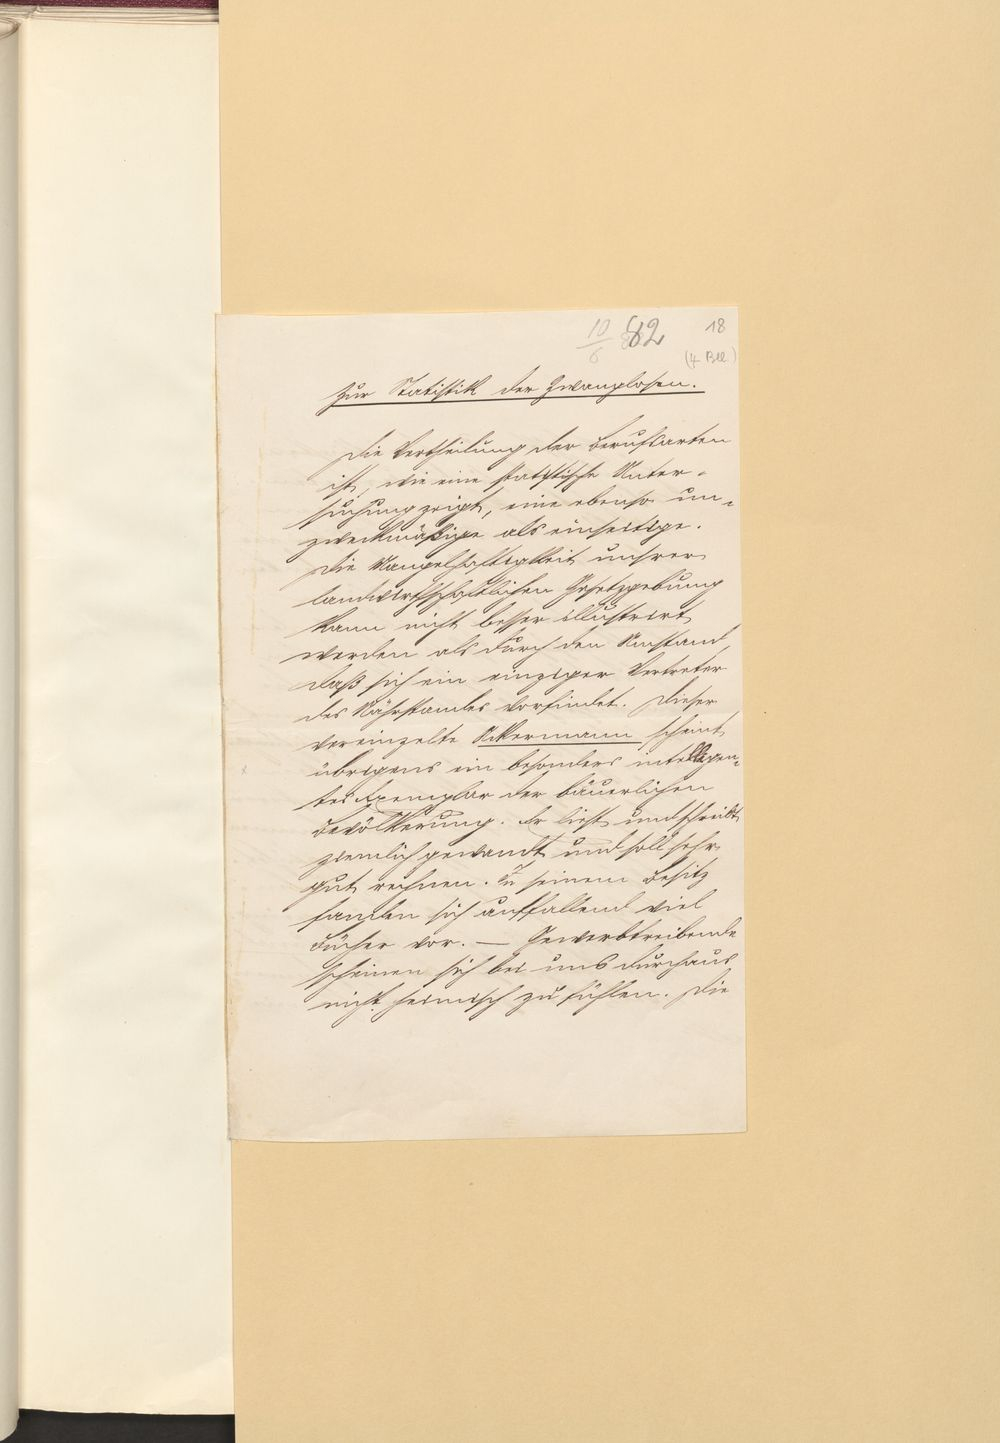 10/6 82
18
(4 Bll.)
Zur Statistik der Zwanglosen.
Die Vertheilung der Berufsarten
ist, wie eine statistische Unter-
suchung zeigt, eine ebenso un-
zweckmäßige als einseitige.
Die Mangelhaftigkeit unsrer
landwirthschaftlichen Gesetzgebung
kann nicht besser illustrirt
werden als durch den Umstand,
daß sich ein einziger Vertreter
des Nährstandes vorfindet. Dieser
vereinzelte Ackermann scheint
übrigens ein besonders intelligen-
tes Exemplar der bäuerlichen
Bevölkerung. Er liest und schreibt
ziemlich gewandt und soll sehr
gut rechnen. In seinem Besitz
fanden sich auffallend viel
Bücher vor. — Gewerbtreibende
scheinen sich bei uns durchaus
nicht heimisch zu fühlen. Die